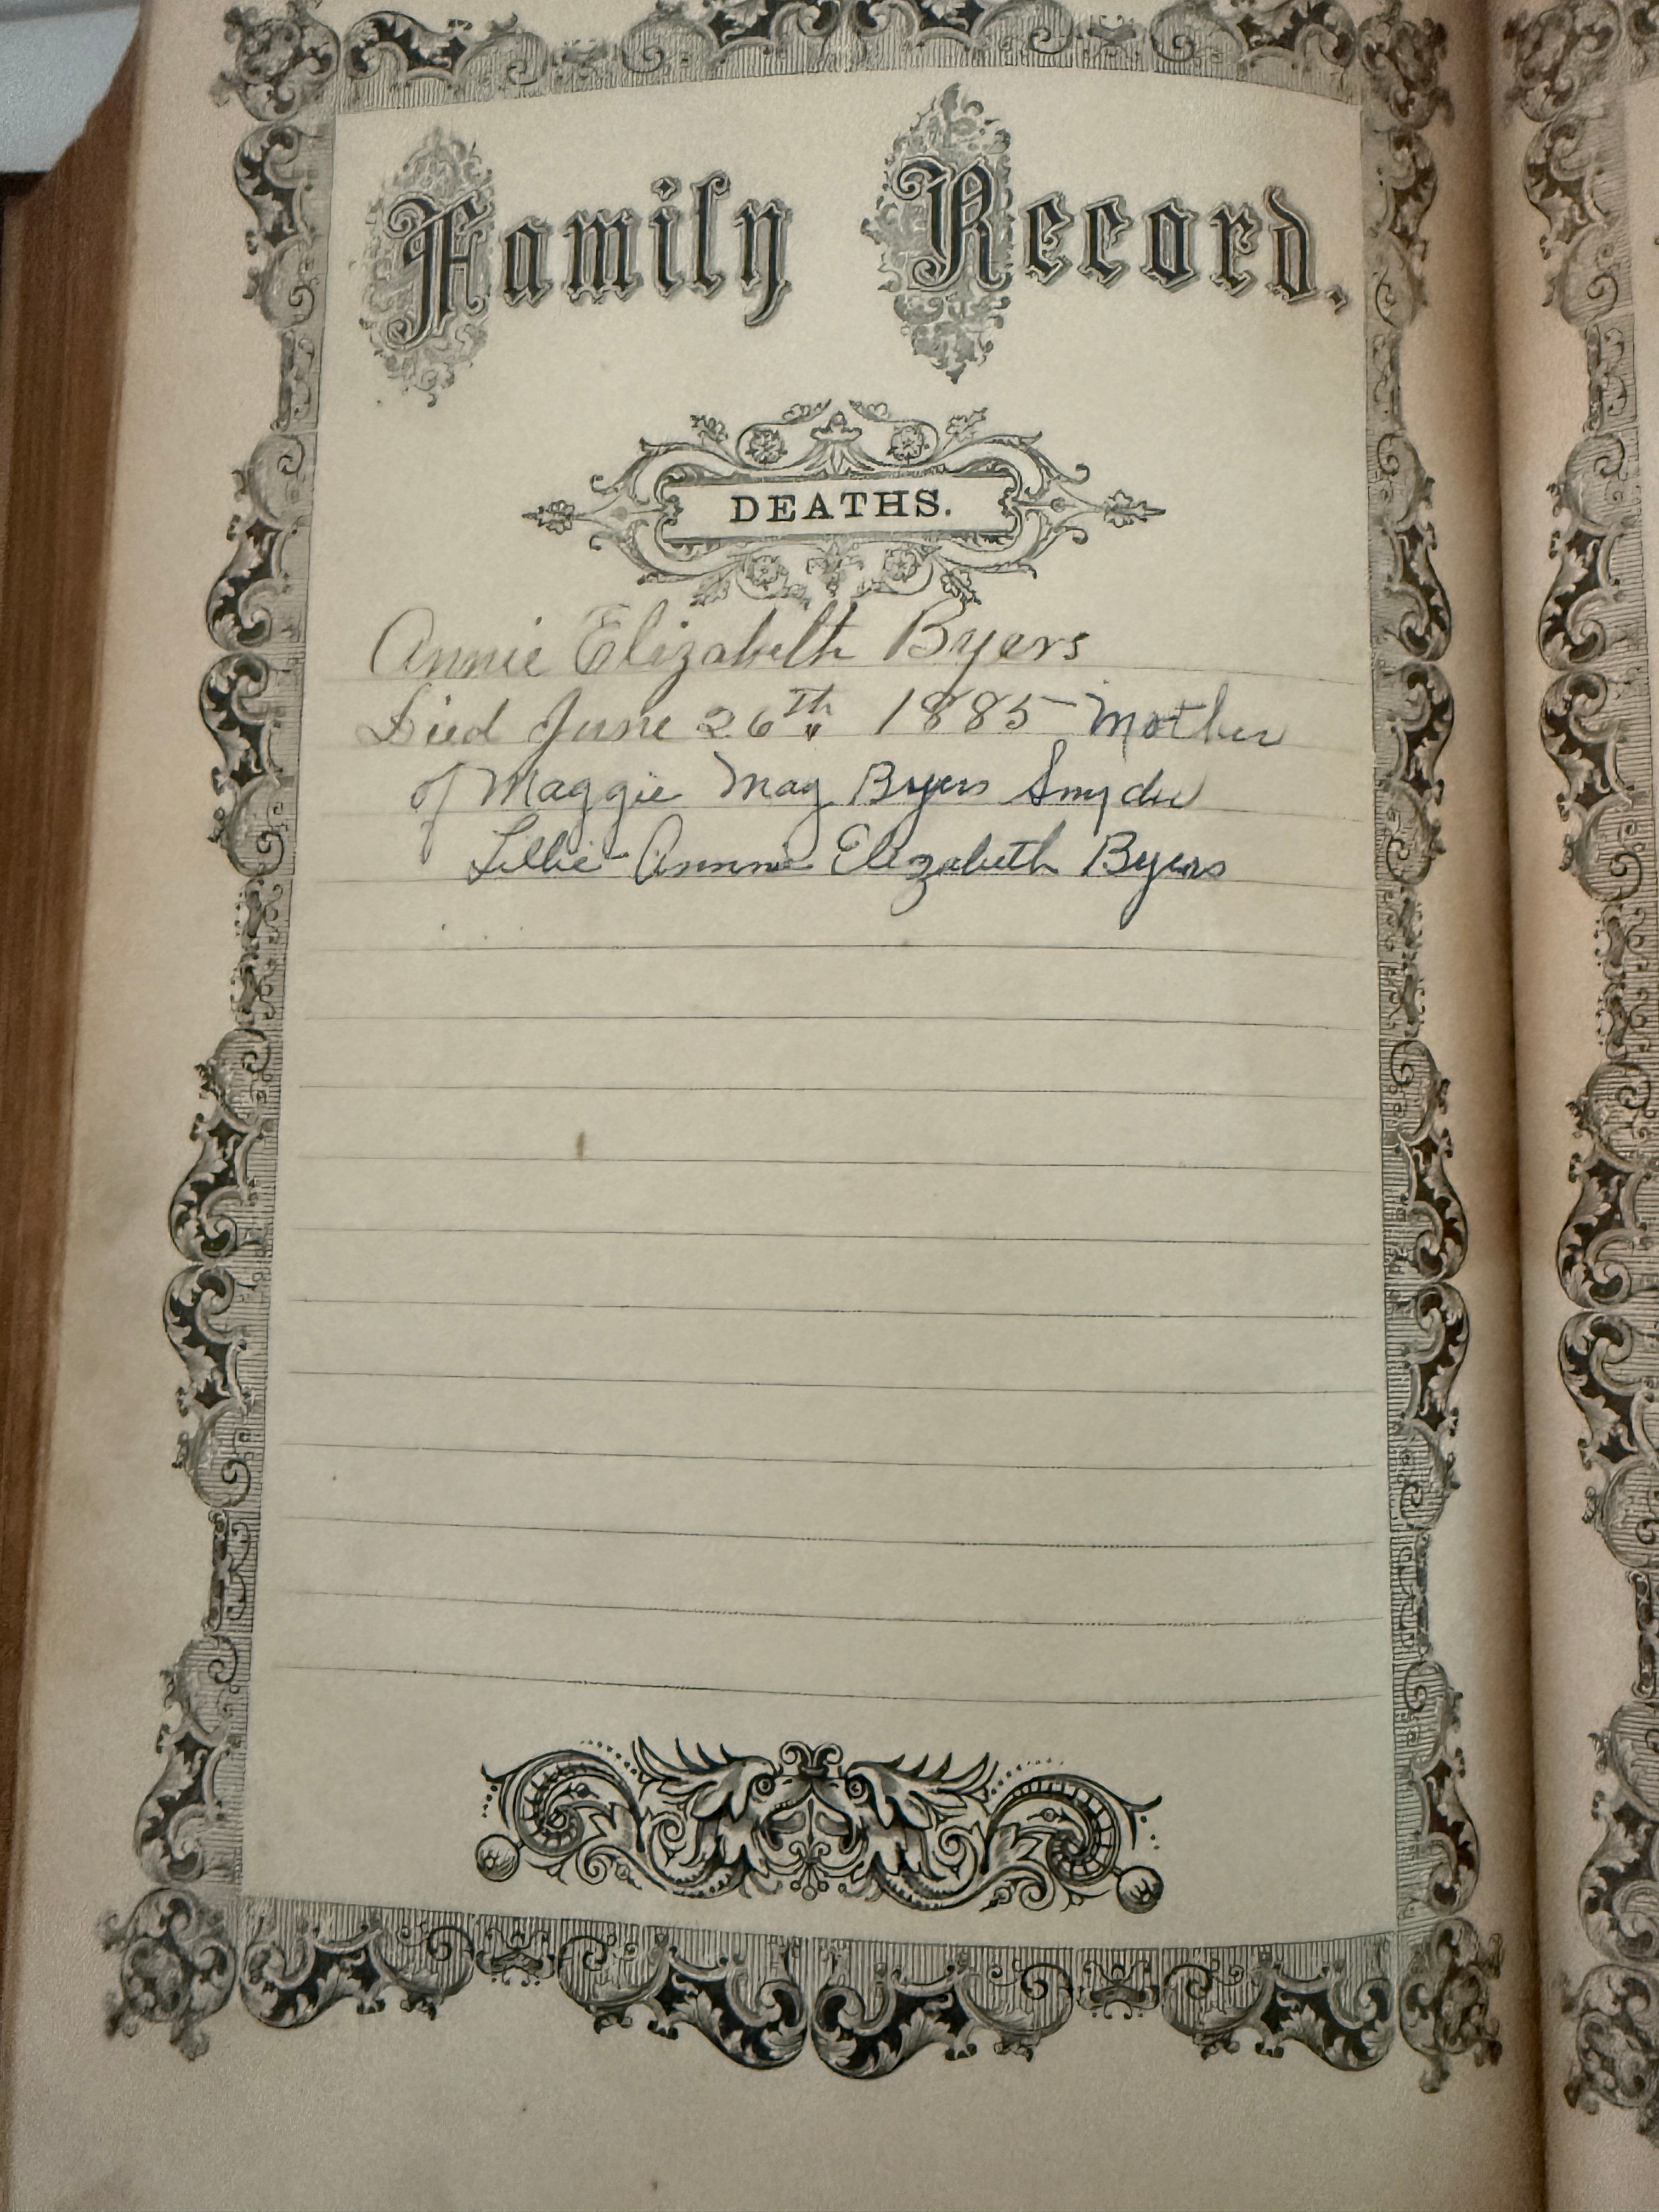 Family Record.
DEATHS.
Annie Elizabeth Byers
Died June 26th 1885 Mother
of Maggie May Byers Snyder
Lillie Annie Elizabeth Byers